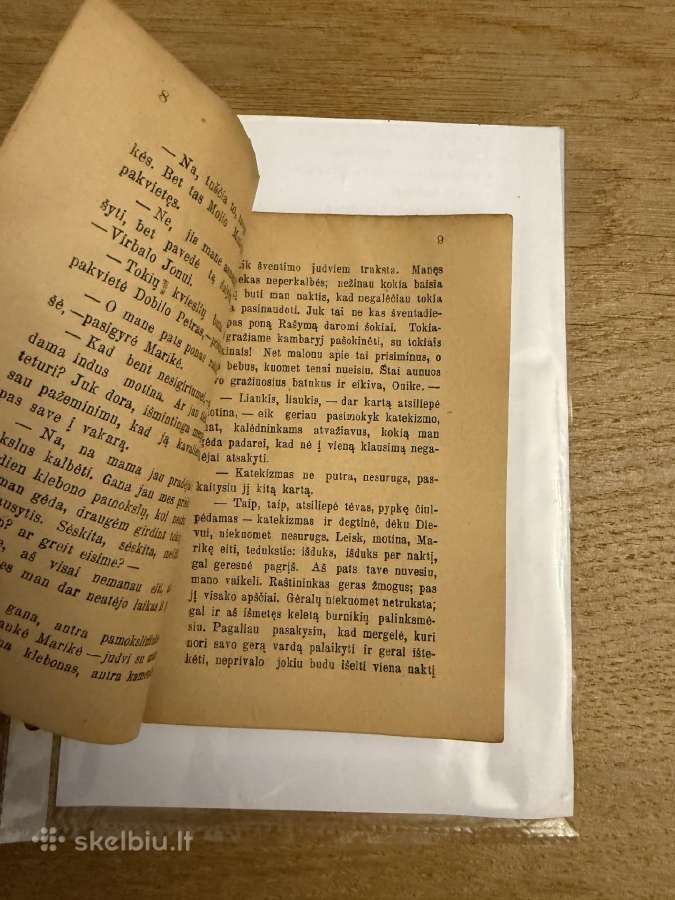 8
— Na, tuščia to,
kės. Bet tas Moilo
pakvietęs.
— Ne, jis mane
šyti, bet pavedė tą
—Virbalo Jonui.
— Tokių kvieslių
pakvietė Dobilo Petras,
— O mane pats ponas
šė,—pasigyrė Marikė.
— Kad bent nesigirtumei,
dama indus motina. Ar jau
teturi? Juk dora, išmintinga
sau pažeminimu, kad ją
pas save į vakarą.
— Na, na mama jau
kslus kalbėti. Gana jau mes
dien klebono pamokslų, kol
man gėda, draugėm girdint
usytis. Sėskita, sėskita,
? ar greit eisime?—
, aš visai nemanau eiti,
es man dar neatėjo laikas
gana, antra
aukė Marikė —judvi su
na klebonas, antra
9
ik šventimo judviem truksta. Manęs
ekas neperkalbės; nežinau kokia baisia
buti man naktis, kad negalėčiau tokia
a pasinaudoti. Juk tai ne kas šventadie-
pas poną Rašymą daromi šokiai. Tokia-
gražiame kambaryj pašokinėti, su tokiais
kinais! Net malonu apie tai prisiminus, o
bebus, kuomet tenai nueisiu. Štai aunuos
vo gražiuosius batukus ir eikiva, Onike. —
— Liaukis, liaukis,— dar kartą atsiliepė
motina, — eik geriau pasimokyk katekizmo,
nat, kalėdninkams atvažiavus, kokią man
gėda padarei, kad nė į vieną klausimą nega-
ėjai atsakyti.
— Katekizmas ne putra, nesurugs, pas-
kaitysiu jį kitą kartą.
— Taip, taip, atsiliepė tėvas, pypkę čiul-
pėdamas — katekizmas ir degtinė, dėku Die-
vui, niekuomet nesurugs. Leisk, motina, Ma-
rikę eiti, tedukstie: išduks, išduks per naktį,
gal geresnė pagrįš. Aš pats tave nuvesiu,
mano vaikeli. Raštininkas geras žmogus; pas
jį visako apščiai. Gėralų niekuomet netruksta;
gal ir aš išmetęs keletą burnikių palinksmė-
siu. Pagaliau pasakysiu, kad mergelė, kuri
nori savo gerą vardą palaikyti ir gerai ište-
kėti, neprivalo jokiu budu išeiti viena naktį
skelbiu.lt